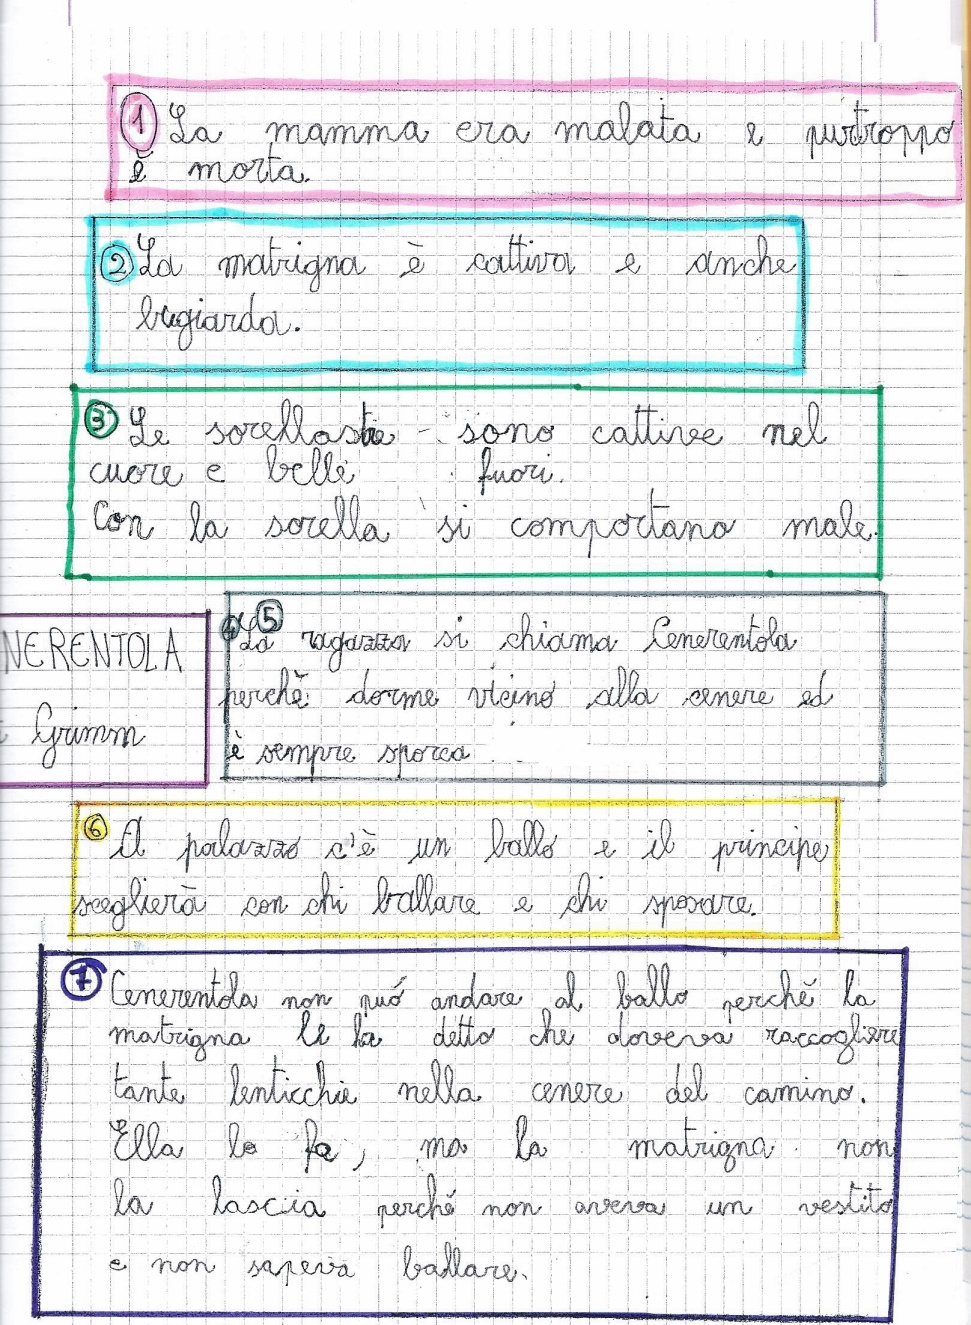 1 La mamma era malata e purtroppo
è morta.
2 La matrigna è cattiva e anche
bugiarda.
3 Le sorellastre sono cattive nel
cuore e belle fuori.
Con la sorella si comportano male.
NERENTOLA
Grimm
5 La ragazza si chiama Cenerentola
perchè dorme vicino alla cenere ed
è sempre sporca
6 Al palazzo c'è un ballo e il principe
sceglierà con chi ballare e chi sposare.
7 Cenerentola non può andare al ballo perché la
matrigna le ha detto che doveva raccogliere
tante lenticchie nella cenere del camino.
Ella lo fa, ma la matrigna non
la lascia perché non aveva un vestito
e non sapeva ballare.